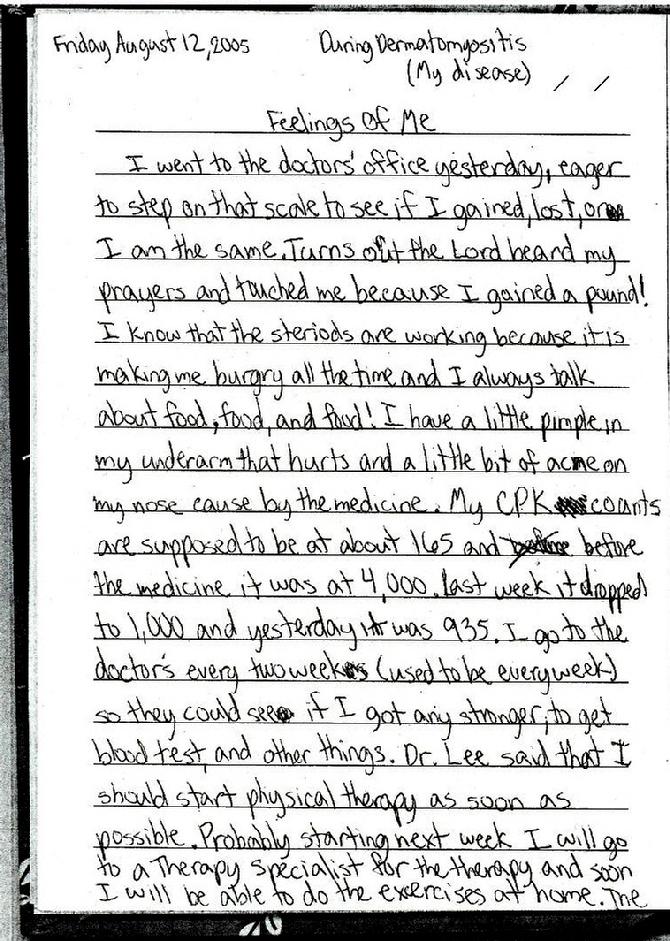 Friday August 12, 2005 During Dermatomyositis
(My disease)
Feelings Of Me
I went to the doctors' office yesterday, eager
to step on that scale to see if I gained, lost, or
I am the same. Turns out the Lord heard my
prayers and touched me because I gained a pound!
I know that the steriods are working because it is
making me hungry all the time and I always talk
about food, food, and food! I have a little pimple in
my underarm that hurts and a little bit of acne on
my nose cause by the medicine. My CPK counts
are supposed to be at about 165 and before
the medicine it was at 4,000. last week it dropped
to 1,000 and yesterday it was 935. I go to the
doctor's every two weeks (used to be every week)
so they could see if I got any stronger, to get
blood test, and other things. Dr. Lee said that I
should start physical therapy as soon as
possible. Probably starting next week I will go
to a Therapy specialist for the therapy and soon
I will be able to do the exercises at home. The